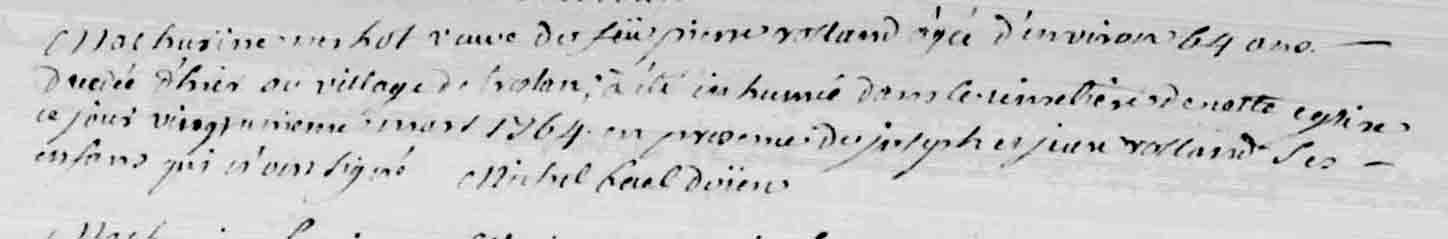 Mathurine veuve de feü pierre rolland agée d'environ 64 ans
decedée d'hier au village de a été inhumée dans le cimetiere de notre eglise
ce jour vingt unieme mars 1764 en presence de joseph et jean rolland ses
enfans qui n'ont signé Michel doïen